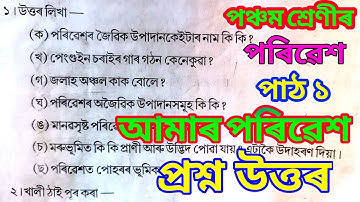 ১। উত্তৰ লিখা —
(ক) পৰিৱেশৰ জৈৱিক উপাদানকেইটাৰ নাম কি কি ?
(খ) পেংগুইন চৰাইৰ গাৰ গঠন কেনেকুৱা ?
(গ) জলাহ অঞ্চল কাক বোলে ?
(ঘ) পৰিৱেশৰ অজৈৱিক উপাদানসমূহ কি কি ?
(ঙ) মানৱসৃষ্ট
(চ) মৰুভূমিত কি কি প্ৰাণী আৰু উদ্ভিদ পোৱা যায়
উদাহৰণ দিয়া।
(ছ) পৰিৱেশত পোহৰৰ
২। খালী ঠাই পূৰ কৰা —
পঞ্চম শ্ৰেণীৰ
পৰিৱেশ
পাঠ ১
আমাৰ পৰিৱেশ
প্ৰশ্ন উত্তৰ